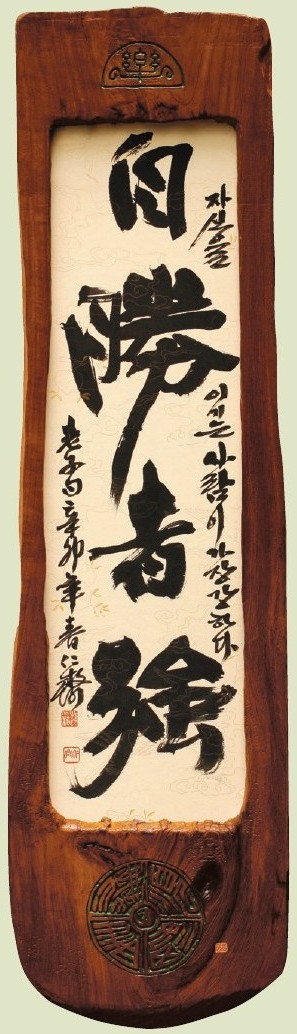 樂
自勝者強
자신을 이기는 사람이 가장 강하다
老子句 辛卯年春 仁齋